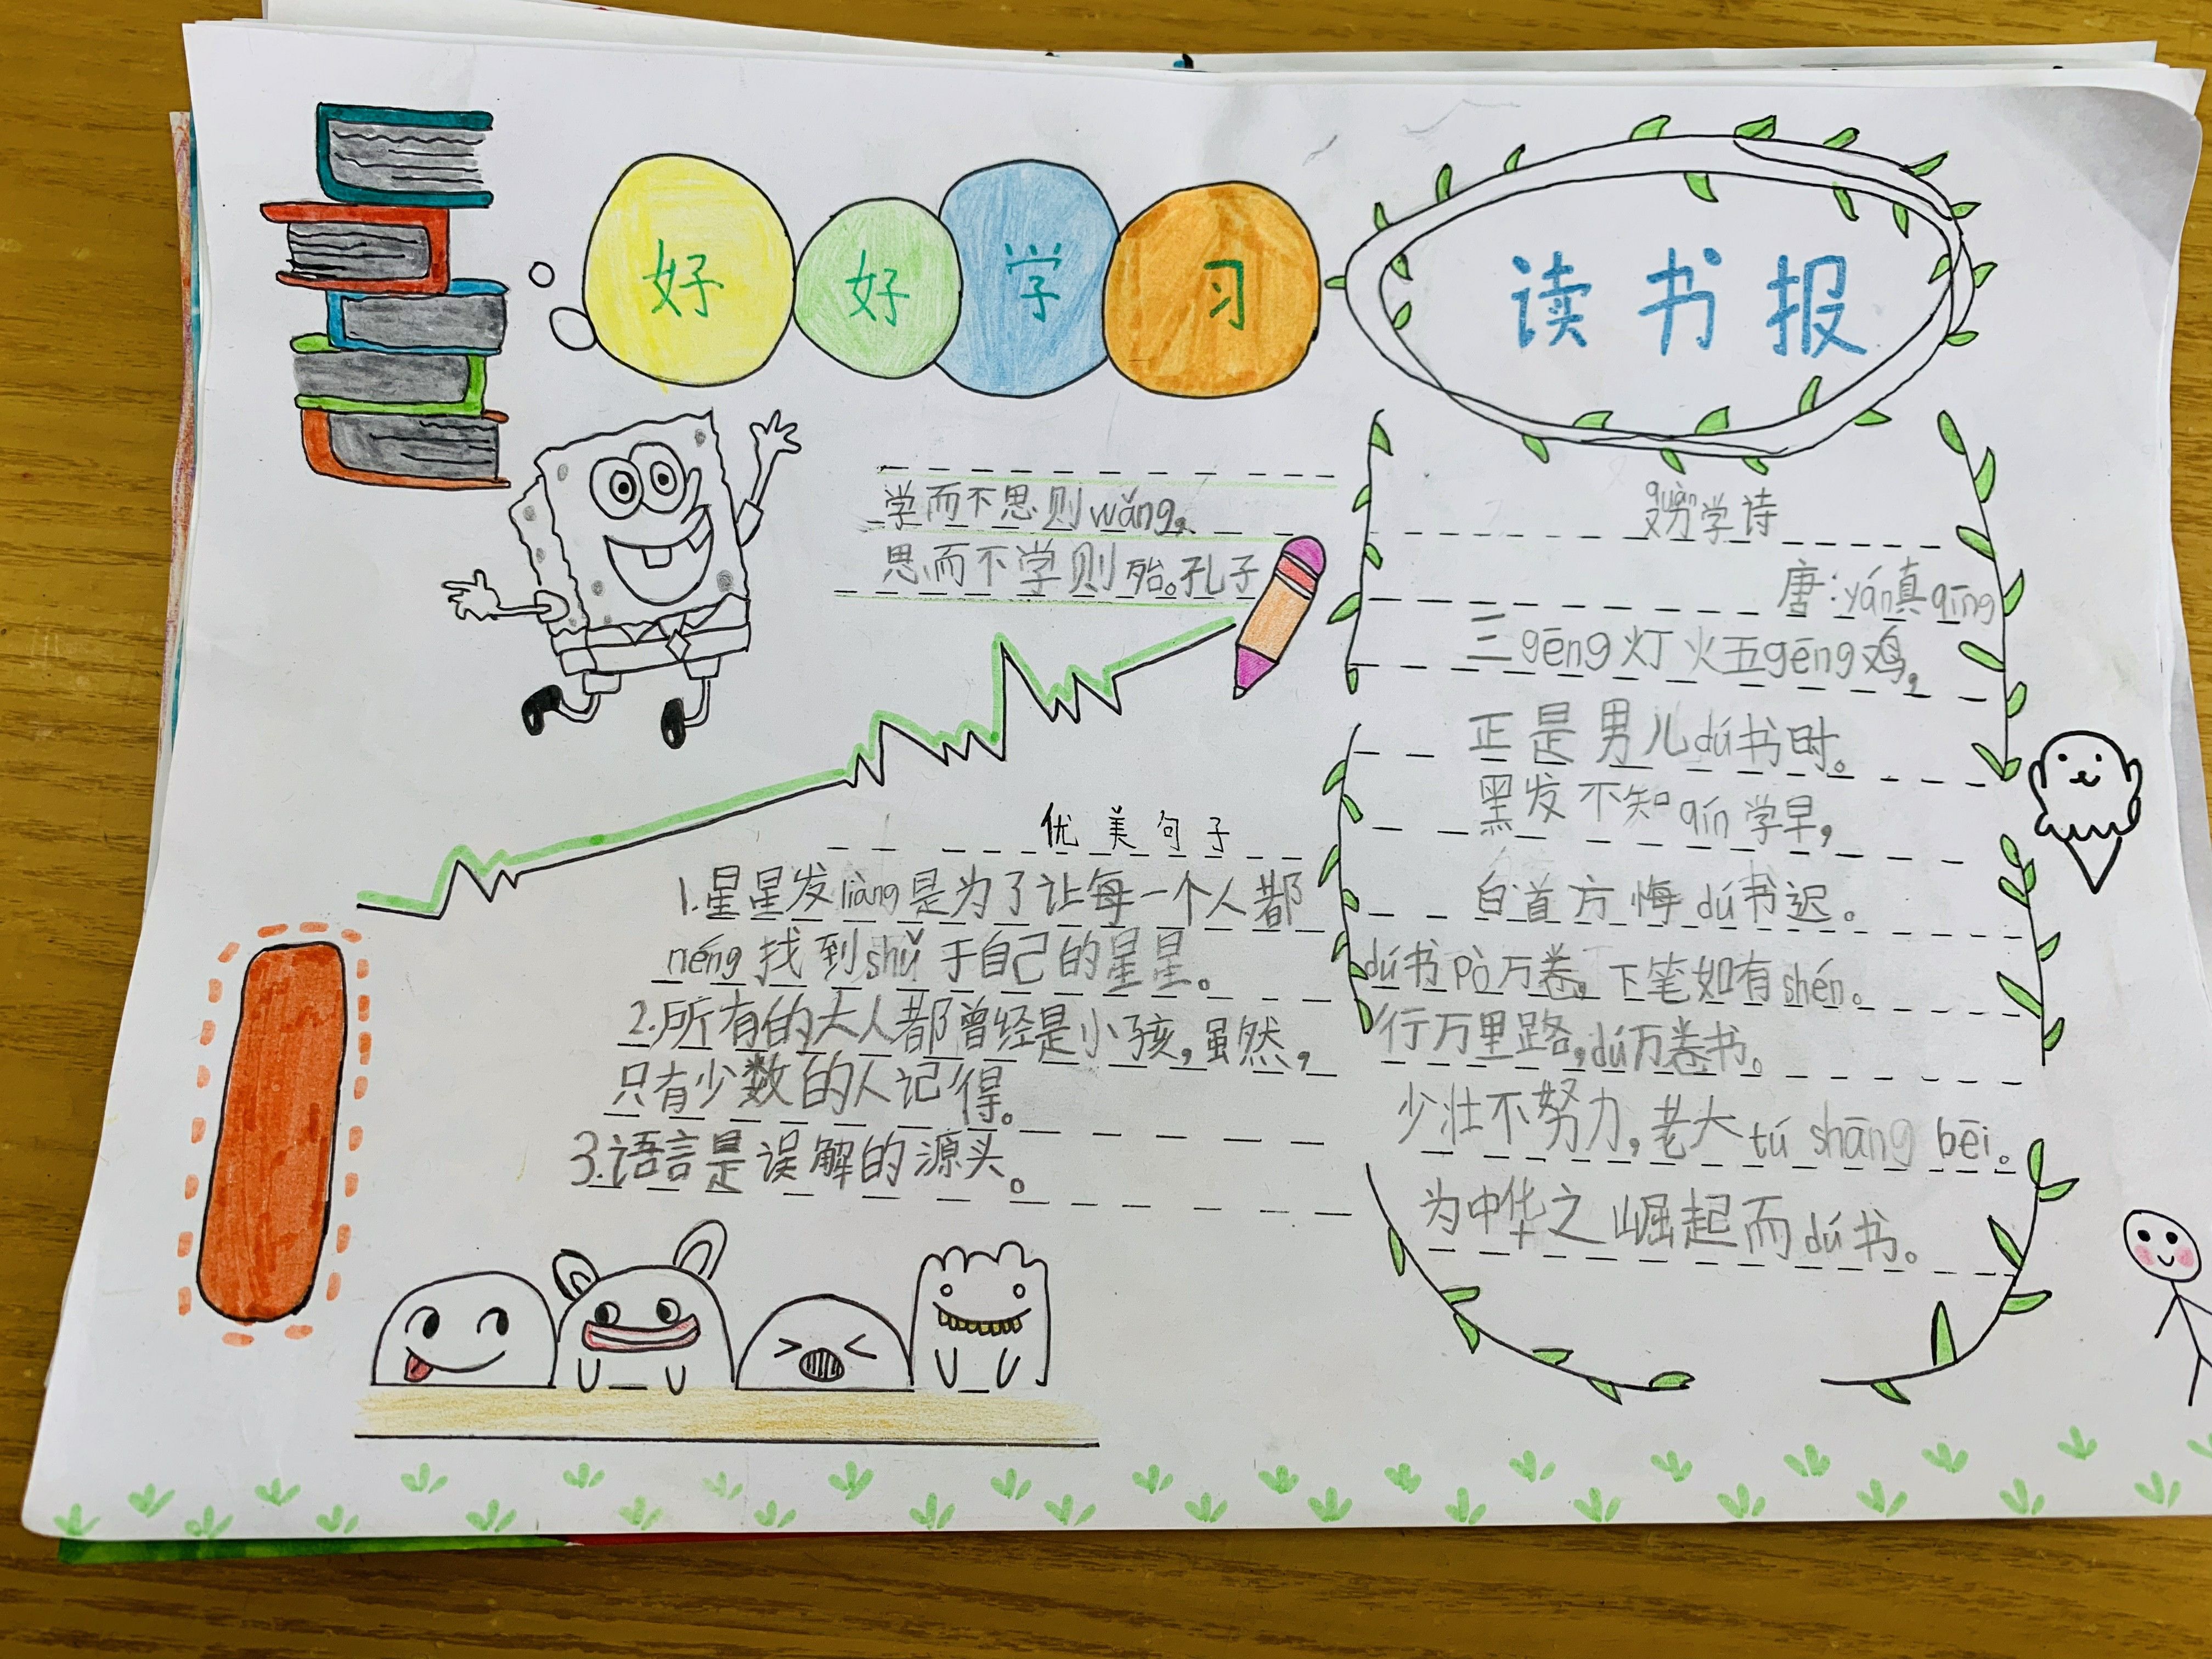 好好学习
读书报
学而不思则wǎng,
思而不学则殆。孔子
优美句子
1.星星发liàng是为了让每一个人都
néng找到shǔ于自己的星星。
2.所有的大人都曾经是小孩,虽然,
只有少数的人记得。
3.语言是误解的源头。
quàn
劝学诗
唐:yán真qīng
三gēng灯火五gēng鸡,
正是男儿dú书时。
黑发不知qín学早,
白首方悔dú书迟。
dú书pò万卷,下笔如有shén。
行万里路,dú万卷书。
少壮不努力,老大tú shāng bēi。
为中华之崛起而dú书。